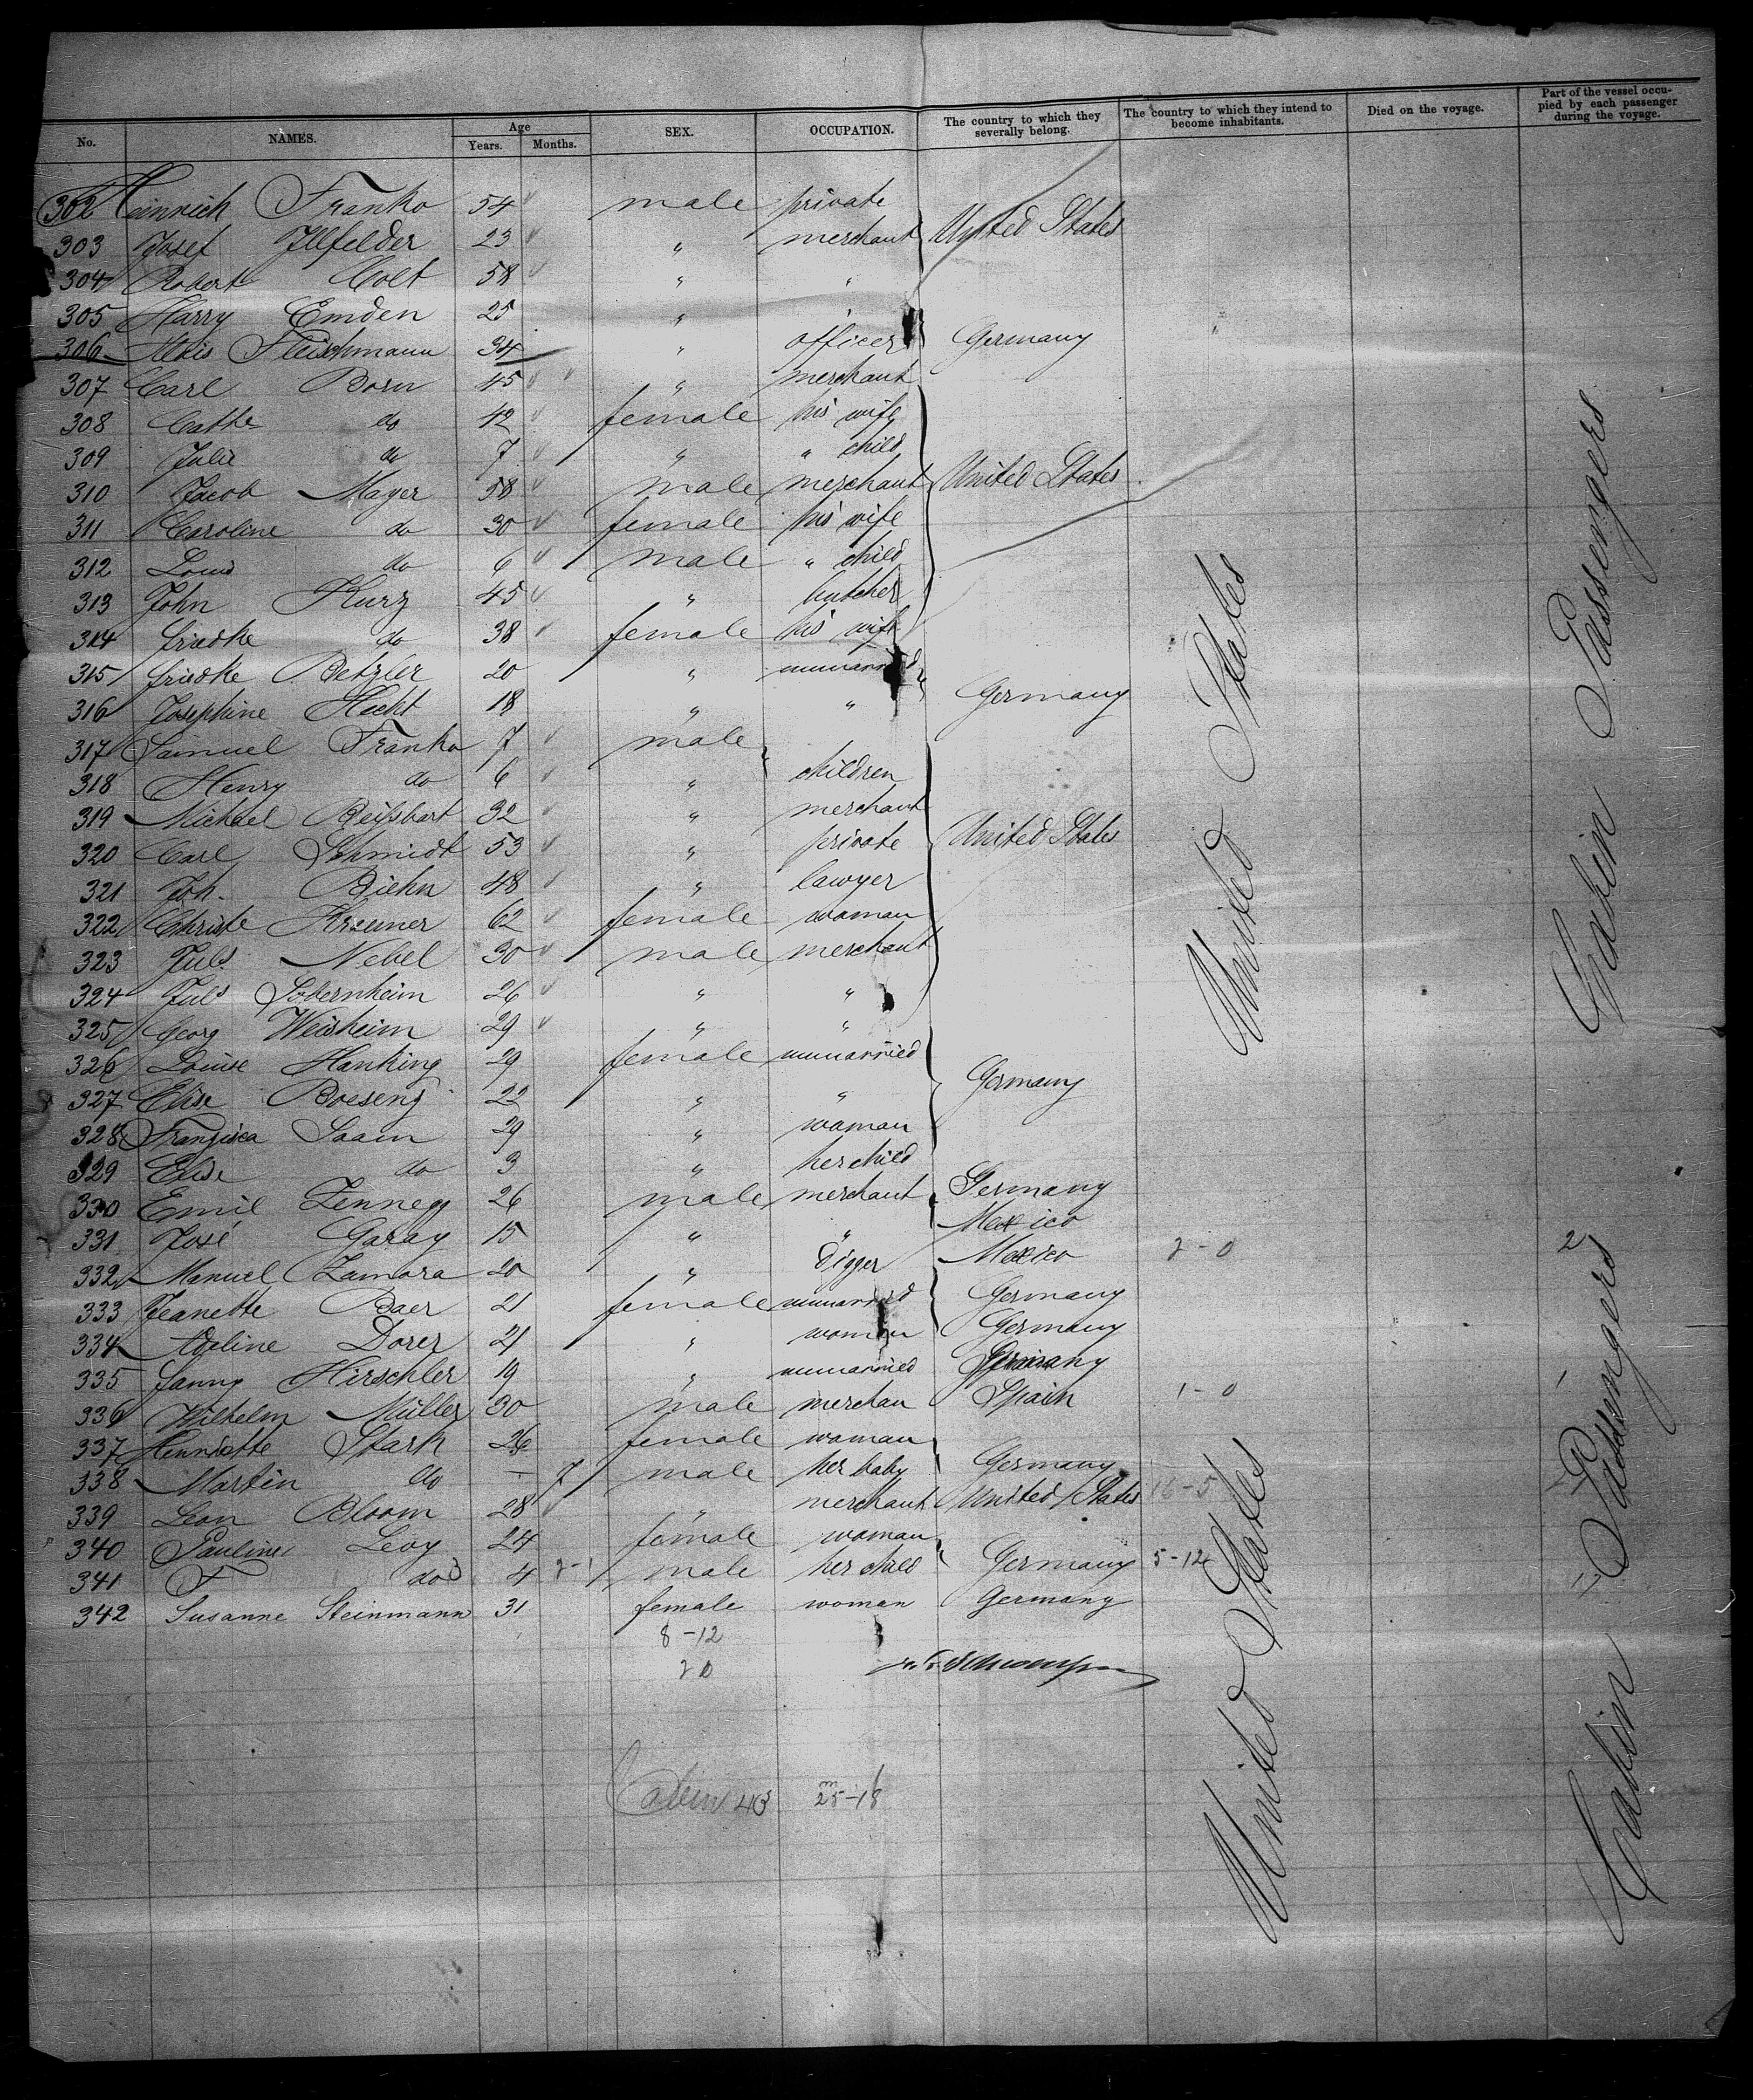 No. NAMES. Age Years. Months. SEX. OCCUPATION. The country to which they severally belong. The country to which they intend to become inhabitants. Died on the voyage. Part of the vessel occupied by each passenger during the voyage.
302 Heinrich Franko 54 male private
303 Josef Illfelder 23 " merchant United States
304 Robert Colt 58 " "
305 Harry Emden 25 "
306 Alois Fleischmann 34 " officer Germany
307 Carl Born 45 " merchant
308 Cathe do 42 female his wife
309 Julie do 7 " " child
310 Jacob Mayer 58 male merchant United States
311 Caroline do 30 female his wife
312 Louis do 6 male " child
313 John Kurz 45 " butcher
314 friedke do 38 female his wife
315 friedke Betzler 20 " unmarried
316 Josephine Hecht 18 " " Germany
317 Samuel Franko 7 male
318 Henry do 6 " children
319 Michael Reissbart 32 " merchant
320 Carl Schmidt 53 " private United States
321 Joh. Biehn 48 " lawyer
322 Christe 62 female woman
323 Juls Nebel 30 male merchant
324 Juls Sobernheim 26 " "
325 Georg Weisheim 29 " "
326 Louise Hanking 29 female unmarried
327 Elise Boeseng 22 " " Germany
328 Franzisca Saam 29 " woman
329 Elise do 3 " her child
330 Emil Zennegg 26 male merchant Germany
331 José Garay 15 " " Mexico
332 Manuel Zamora 20 " Digger Mexico 2-0 2
333 Jeanette Baer 21 female unmarried Germany
334 Adeline Dorer 21 " woman Germany
335 fanny Hirschler 19 " unmarried Germany
336 Wilhelm Müller 30 male merchan Spain 1-0 1
337 Henriette Stark 26 female woman
338 Martin do - 7 male her baby Germany
339 Leon Bloom 28 " merchant United States 16-5
340 Pauline Levy 24 female woman
341 F do 4 2-1 male her child Germany 5-12
342 Susanne Steinmann 31 female woman Germany
8-12
20
Cabin 43 m 25-18
United States
United States
Cabin Passengers
Cabin Passengers